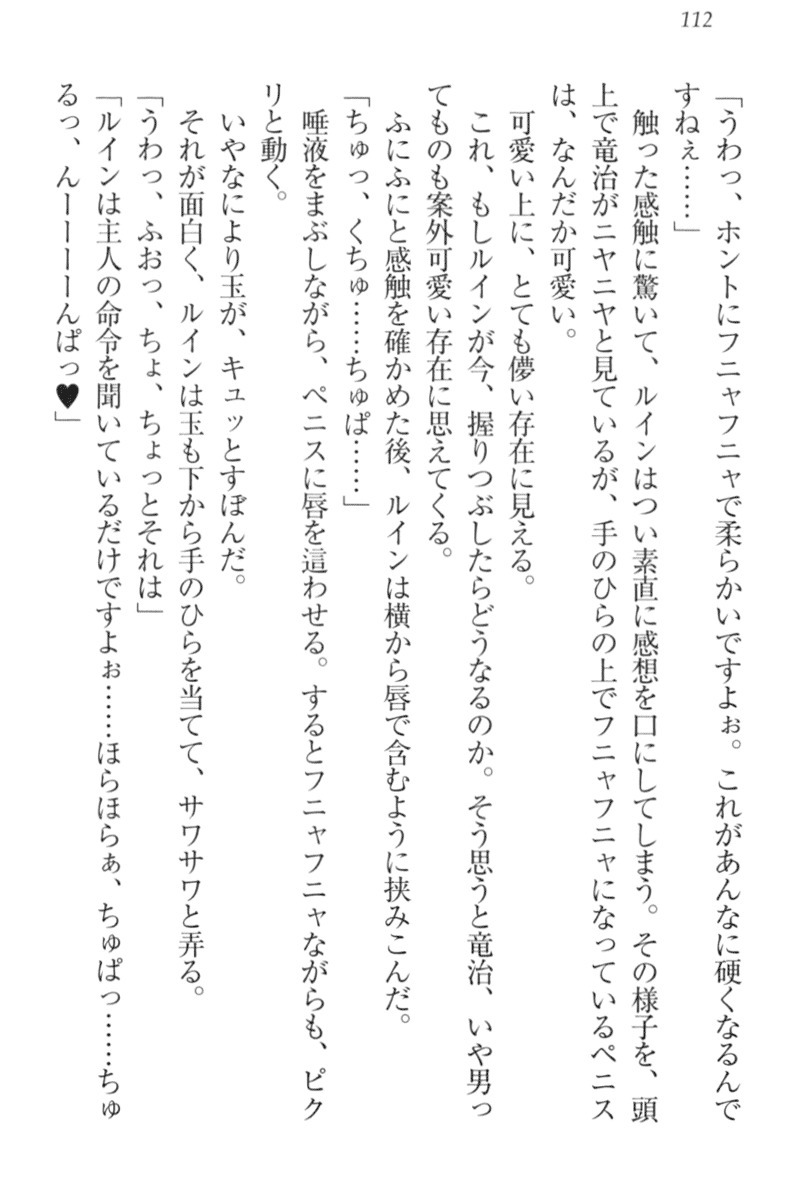 112
「うわっ、ホントにフニャフニャで柔らかいですよぉ。これがあんなに硬くなるんで
すねぇ……」
　触った感触に驚いて、ルインはつい素直に感想を口にしてしまう。その様子を、頭
上で竜治がニヤニヤと見ているが、手のひらの上でフニャフニャになっているペニス
は、なんだか可愛い。
　可愛い上に、とても儚い存在に見える。
　これ、もしルインが今、握りつぶしたらどうなるのか。そう思うと竜治、いや男っ
てものも案外可愛い存在に思えてくる。
　ふにふにと感触を確かめた後、ルインは横から唇で含むように挟みこんだ。
「ちゅっ、くちゅ……ちゅぱ……」
　唾液をまぶしながら、ペニスに唇を這わせる。するとフニャフニャながらも、ピク
リと動く。
　いやなにより玉が、キュッとすぼんだ。
　それが面白く、ルインは玉も下から手のひらを当てて、サワサワと弄る。
「うわっ、ふおっ、ちょ、ちょっとそれは」
「ルインは主人の命令を聞いているだけですよぉ……ほらほらぁ、ちゅぱっ……ちゅ
るっ、んーーーーんぱっ♥」